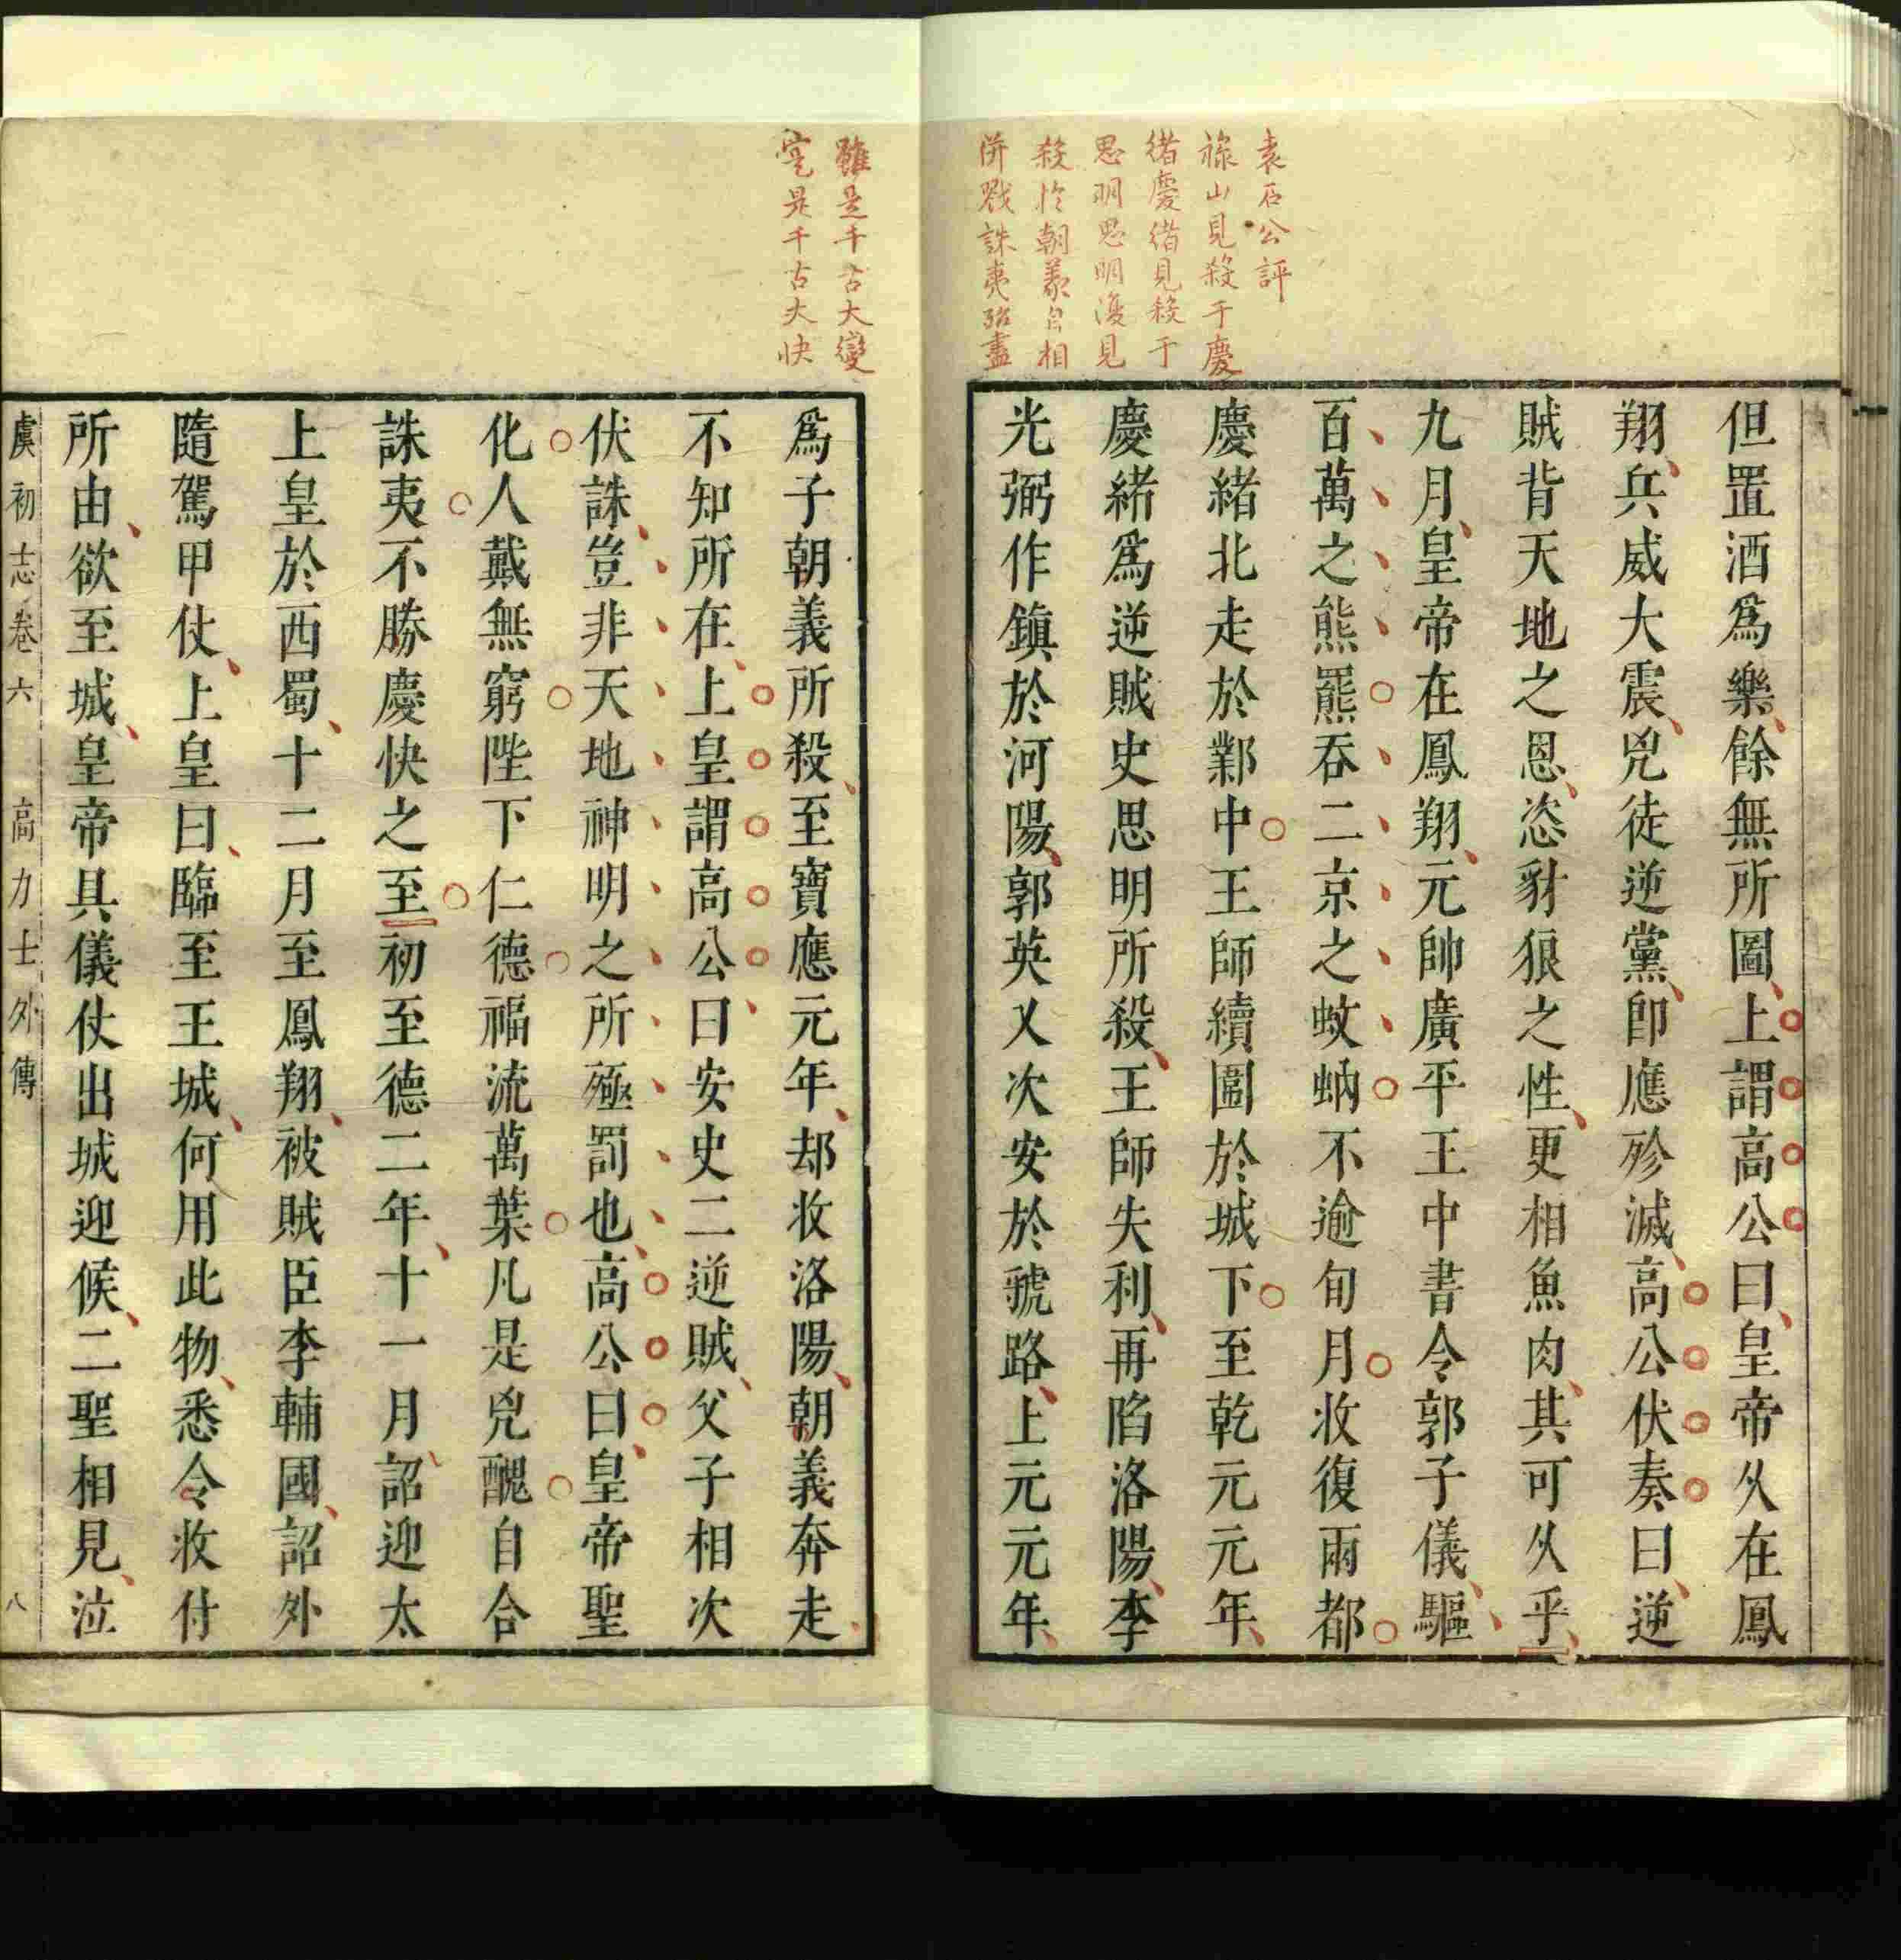 袁石公評
祿山見殺于慶
緒慶緒見殺于
思明思明復見
殺於朝義自相
併戮誅夷殆盡
但置酒爲樂餘無所圖上謂高公曰皇帝久在鳳
翔兵威大震兇徒逆黨卽應殄滅高公伏奏曰逆
賊背天地之恩恣豺狼之性更相魚肉其可久乎
九月皇帝在鳳翔元帥廣平王中書令郭子儀驅
百萬之熊羆吞二京之蚊蚋不逾旬月收復兩都
慶緒北走於鄴中王師續圍於城下至乾元元年
慶緒爲逆賊史思明所殺王師失利再陷洛陽李
光弼作鎮於河陽郭英乂次安於虢路上元元年
雖是千古大變
寔是千古大快
爲子朝義所殺至寶應元年却收洛陽朝義奔走
不知所在上皇謂高公曰安史二逆賊父子相次
伏誅豈非天地神明之所殛罰也高公曰皇帝聖
化人戴無窮陛下仁德福流萬葉凡是兇醜自合
誅夷不勝慶快之至初至德二年十一月詔迎太
上皇於西蜀十二月至鳳翔被賊臣李輔國詔外
隨駕甲仗上皇曰臨至王城何用此物悉令收付
所由欲至城皇帝具儀仗出城迎候二聖相見泣
虞初志卷六 高力士外傳 八